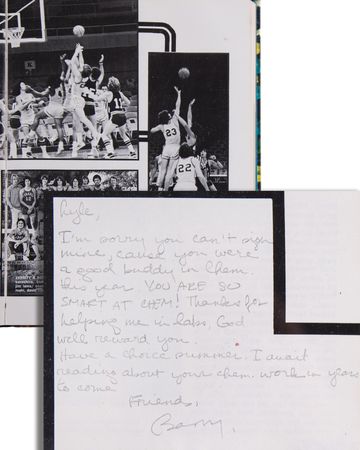 Lyle,
I'm sorry you can't sign
mine, cause you were
a good buddy in Chem.
this year YOU ARE SO
SMART AT CHEM! Thanks for
helping me in labs, God
will reward you.
Have a choice summer. I await
reading about your chem. work in years
to come
Friends,
Barry.
23
22